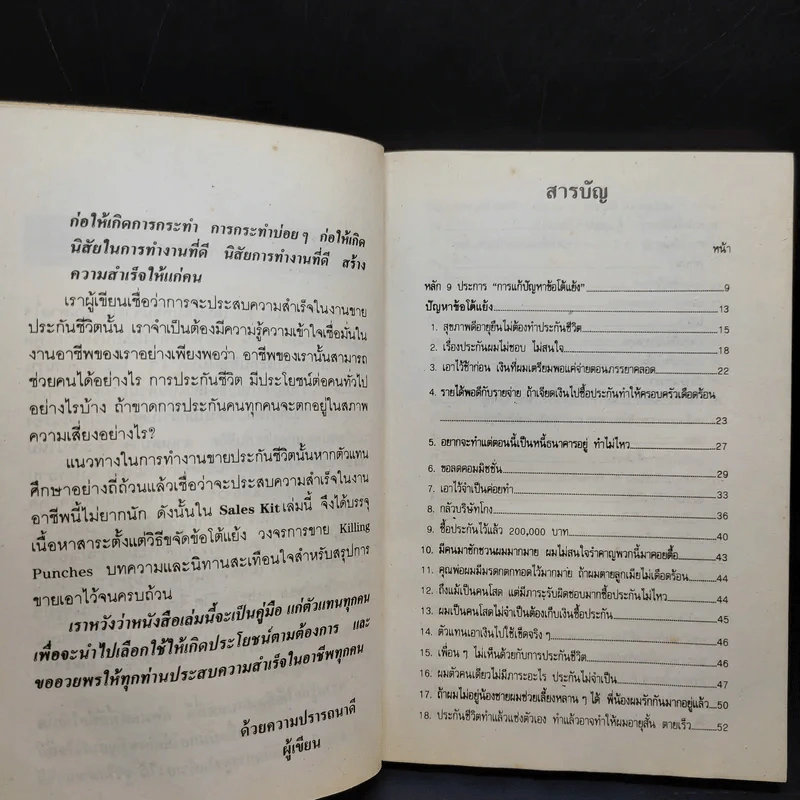 ก่อให้เกิดการกระทำ การกระทำบ่อย ๆ ก่อให้เกิด
นิสัยในการทำงานที่ดี นิสัยการทำงานที่ดี สร้าง
ความสำเร็จให้แก่คน
เราผู้เขียนเชื่อว่าการจะประสบความสำเร็จในงานขาย
ประกันชีวิตนั้น เราจำเป็นต้องมีความรู้ความเข้าใจเชื่อมั่นใน
งานอาชีพของเราอย่างเพียงพอว่า อาชีพของเรานั้นสามารถ
ช่วยคนได้อย่างไร การประกันชีวิต มีประโยชน์ต่อคนทั่วไป
อย่างไรบ้าง ถ้าขาดการประกันคนทุกคนจะตกอยู่ในสภาพ
ความเสี่ยงอย่างไร?
แนวทางในการทำงานขายประกันชีวิตนั้นหากตัวแทน
ศึกษาอย่างถี่ถ้วนแล้วเชื่อว่าจะประสบความสำเร็จในงาน
อาชีพนี้ไม่ยากนัก ดังนั้นใน Sales Kit เล่มนี้ จึงได้บรรจุ
เนื้อหาสาระตั้งแต่วิธีขจัดข้อโต้แย้ง วงจรการขาย Killing
Punches บทความและนิทานสะเทือนใจสำหรับสรุปการ
ขายเอาไว้จนครบถ้วน
เราหวังว่าหนังสือเล่มนี้จะเป็นคู่มือ แก่ตัวแทนทุกคน
เพื่อจะนำไปเลือกใช้ให้เกิดประโยชน์ตามต้องการ และ
ขออวยพรให้ทุกท่านประสบความสำเร็จในอาชีพทุกคน
ด้วยความปรารถนาดี
ผู้เขียน
สารบัญ
หน้า
หลัก 9 ประการ "การแก้ปัญหาข้อโต้แย้ง" 9
ปัญหาข้อโต้แย้ง 13
1. สุขภาพดีอายุยืนไม่ต้องทำประกันชีวิต 15
2. เรื่องประกันผมไม่ชอบ ไม่สนใจ 18
3. เอาไว้ช้าก่อน เงินที่ผมเตรียมพอแค่จ่ายตอนภรรยาคลอด 22
4. รายได้พอดีกับรายจ่าย ถ้าเจียดเงินไปซื้อประกันทำให้ครอบครัวเดือดร้อน
23
5. อยากจะทำแต่ตอนนี้เป็นหนี้ธนาคารอยู่ ทำไม่ไหว 27
6. ขอลดคอมมิชชั่น 29
7. เอาไว้จำเป็นค่อยทำ 33
8. กลัวบริษัทโกง 36
9. ซื้อประกันไว้แล้ว 200,000 บาท 40
10. มีคนมาชักชวนผมมากมาย ผมไม่สนใจรำคาญพวกนี้มาคอยตื้อ 43
11. คุณพ่อผมมีมรดกตกทอดไว้มากมาย ถ้าผมตายลูกเมียไม่เดือดร้อน 44
12. ถึงแม้เป็นคนโสด แต่มีภาระรับผิดชอบมากซื้อประกันไม่ไหว 44
13. ผมเป็นคนโสดไม่จำเป็นต้องเก็บเงินซื้อประกัน 45
14. ตัวแทนเอาเงินไปใช้เช็ดจริง ๆ 46
15. เพื่อน ๆ ไม่เห็นด้วยกับการประกันชีวิต 46
16. ผมตัวคนเดียวไม่มีภาระอะไร ประกันไม่จำเป็น 47
17. ถ้าผมไม่อยู่น้องชายผมช่วยเลี้ยงหลาน ๆ ได้ พี่น้องผมรักกันมากอยู่แล้ว 50
18. ประกันชีวิตทำแล้วแช่งตัวเอง ทำแล้วอาจทำให้ผมอายุสั้น ตายเร็ว 52